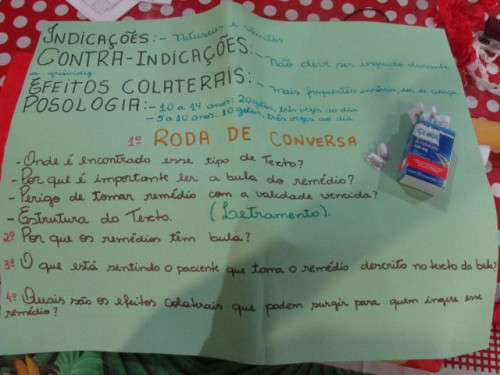 INDICAÇÕES:- Náuseas e vômitos
CONTRA-INDICAÇÕES:- Não deve ser ingerido durante
a gravidez.
EFEITOS COLATERAIS:- Mais frequentes insônia, dor de cabeça.
POSOLOGIA:- 10 a 14 anos: 20 gotas, três vezes ao dia
- 5 a 10 anos: 10 gotas, três vezes ao dia
1º RODA DE CONVERSA
- Onde é encontrado esse tipo de Texto?
- Por que é importante ler a bula do remédio?
- Perigo de tomar remédio com a validade vencida?
- Estrutura do Texto. (Letramento).
2º Por que os remédios têm bula?
3º O que está sentindo o paciente que toma o remédio descrito no texto da bula?
4º Quais são os efeitos colaterais que podem surgir para quem ingere esse
remédio?